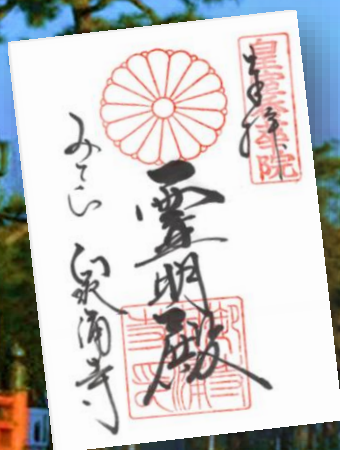 皇室香華院
奉拝
霊明殿
みてら 泉涌寺